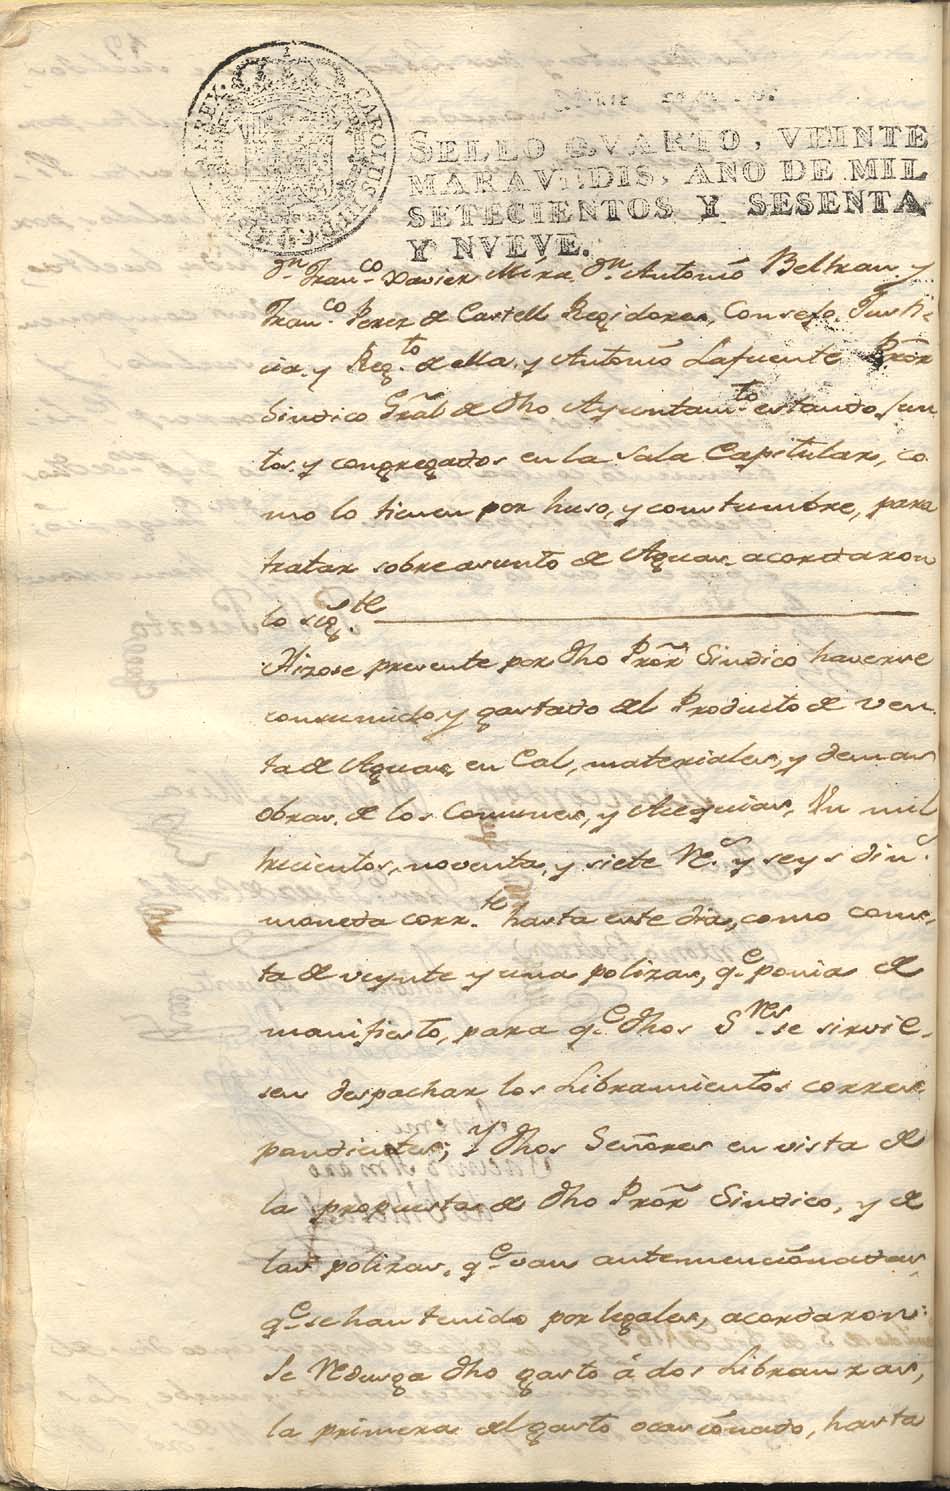 CAROLUS III D G
REX
SELLO QVARTO, VEINTE
MARAVEDIS, AÑO DE MIL
SETECIENTOS Y SESENTA
Y NVEVE.
Dn Franco. Xavier Mira. Dn. Antonio Beltran. y
Franco. Perez de Castell Regidores, Consejo. Justi-
cia. y Regto. de ella. y Antonio Lafuente Pror̃
Sindico Gral de dho Ayuntamto. estando jun
tos. y congregados en la Sala Capitular, co
mo lo tienen por huso, y constumbre, para
tratar sobre asunto de Aguas acordaron
lo sigte.
Hizose presente por dho Pror̃ Sindico haverse
consumido y gastado del Producto de Ven
ta de Aguas, en Cal, materiales, y demas
obras. de los Comunes, y Asequias, Un mil
trecientos, noventa, y siete Rs. y seys din.s
moneda corrte. hasta este dia, como cons-
ta de veynte y una polizas, qe. ponia de
manifiesto, para qe. dhos Snres. se sirvie-
sen despachar los Libramientos corres-
pondientes; y dhos Señores en vista de
la propuesta de dho Pror̃ Sindico, y de
las polizas, qe. van antemencionadas
qe. se han tenido por legales, acordaron:
Se Reduzga dho gasto á dos Libranzas,
la primera del gasto ocasionado, hasta